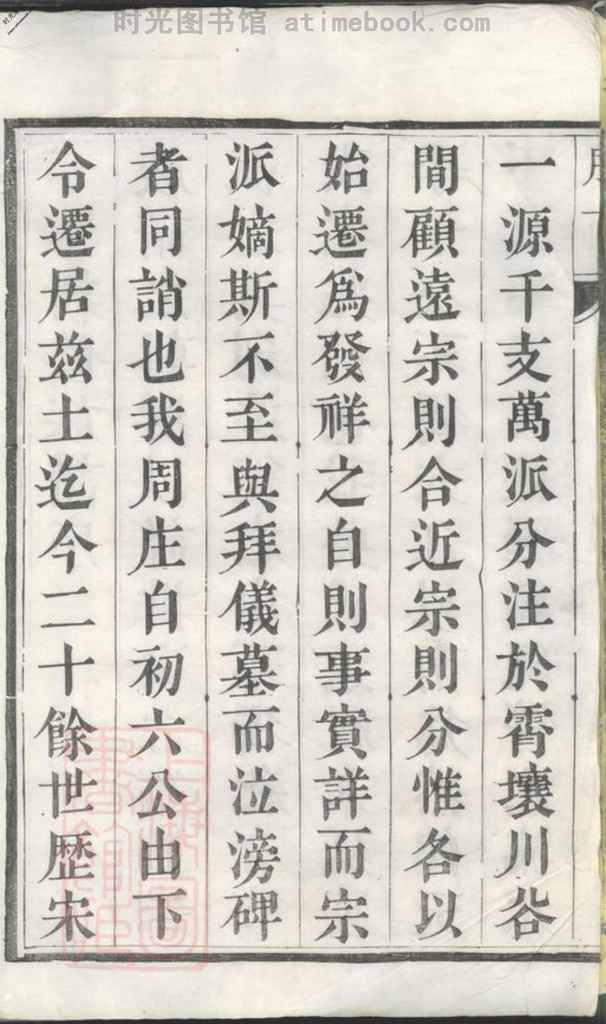 时光图书馆 atimebook.com
一源千支萬派分注於霄壤川谷
間顧遠宗則合近宗則分惟各以
始遷爲發祥之自則事實詳而宗
派嫡斯不至與拜儀墓而泣滂碑
者同誚也我周庄自初六公由下
令遷居兹土迄今二十餘世歴宋